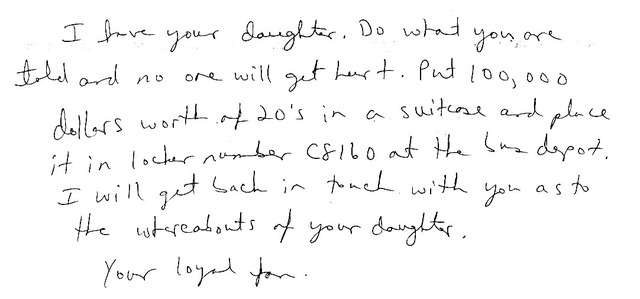 I have your daughter. Do what you are
told and no one will get hurt. Put 100,000
dollars worth of 20's in a suitcase and place
it in locker number C8160 at the bus depot.
I will get back in touch with you as to
the whereabouts of your daughter.
Your loyal fan.